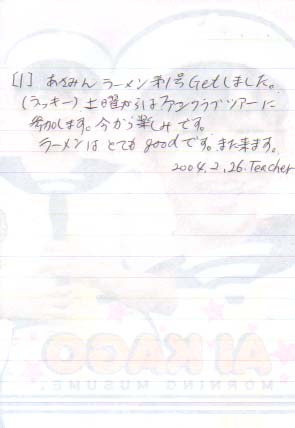 [1] あいぼん ラーメン 第1号 Getしました。
(ラッキー) 土曜からはファンクラブツアーに
参加します。今から楽しみです。
ラーメンは とても goodです。また来ます。
2004.2.26. Teacher
AI KAGO
MORNING MUSUME.